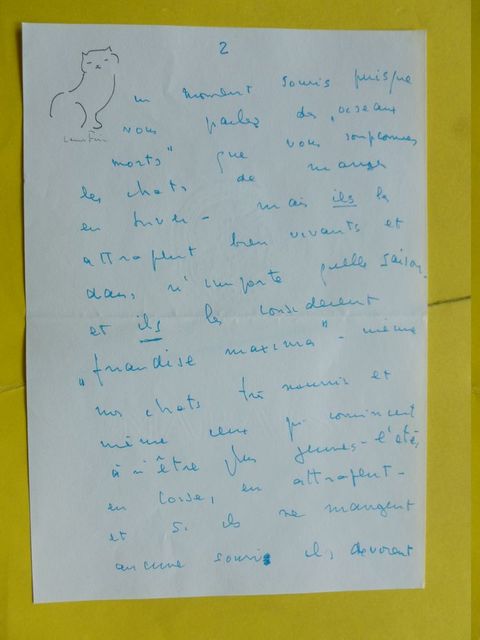 2
un moment souris puisque
vous parlez des "oiseaux
morts" que vous soupçonnez
les chats de manger
en hiver - mais ils les
attrapent bien vivants et
dans n'importe quelle saison.
et ils les considèrent
"friandise maxima" - même
nos chats très nourris et
même ceux qui commencent
à n'être plus jeunes - l'été,
en Corse, en attrapent -
et s'ils ne mangent
aucune souris ils dévorent